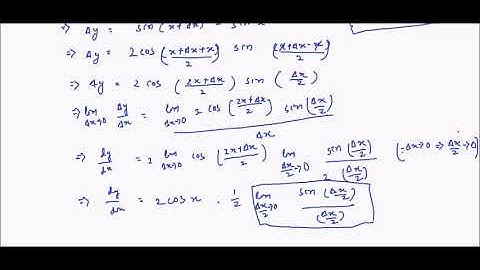 ⇒ Δy = sin(x+Δx)
⇒ Δy = 2 cos (x+Δx+x)/2 sin (x+Δx-x)/2
⇒ Δy = 2 cos ((2x+Δx)/2) sin (Δx/2)
⇒ lim Δx→0 Δy/Δx = lim Δx→0 2 cos ((2x+Δx)/2) sin (Δx/2) / Δx
⇒ dy/dx = 2 lim Δx→0 cos ((2x+Δx)/2) lim Δx/2→0 sin (Δx/2) / 2 (Δx/2) (∵ Δx→0 ⇒ Δx/2→0)
⇒ dy/dx = 2 cos x . 1/2 lim Δx/2→0 sin (Δx/2) / (Δx/2)